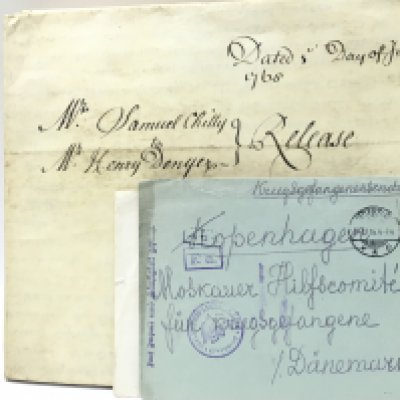 Dated 1st Day of
1768
Mr. Samuel Chilly
to
Mr. Henry Denyer
Release
Kriegsgefangenensend
Kopenhagen
Moskauer Hilfscomité
für Kriegsgefangene
/Dänemark